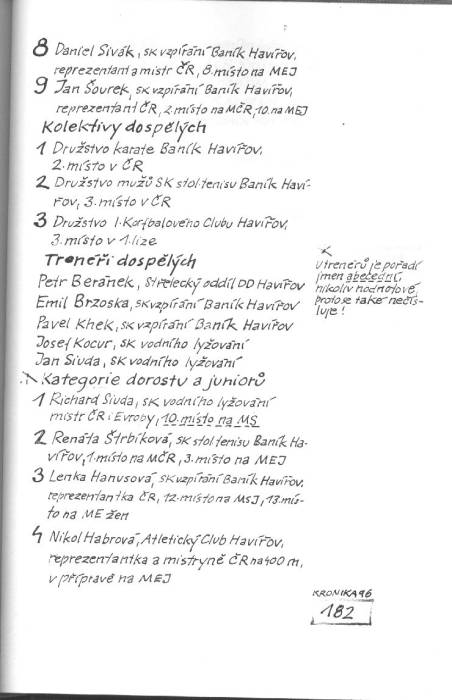 8 Daniel Sivák, SK vzpírání Baník Havířov,
reprezentant a mistr ČR, 8. místo na MEJ
9 Jan Šourek, SK vzpírání Baník Havířov,
reprezentant ČR, 2. místo na MČR, 10. na MEJ
Kolektivy dospělých
1 Družstvo karate Baník Havířov,
2. místo v ČR
2 Družstvo mužů SK stol. tenisu Baník Haví-
řov, 3. místo v ČR
3 Družstvo 1. Korfbalového Clubu Havířov,
3. místo v 1. lize
Trenéři dospělých
Petr Beránek, Střelecký oddíl DD Havířov
Emil Brzoska, SK vzpírání Baník Havířov
Pavel Khek, SK vzpírání Baník Havířov
Josef Kocur, SK vodního lyžování
Jan Siuda, SK vodního lyžování
U trenérů je pořadí
jmen abecední,
nikoliv hodnotové,
proto se také nečís-
luje!
Kategorie dorostu a juniorů
1 Richard Siuda, SK vodního lyžování
mistr ČR i Evropy, 10. místo na MS
2 Renáta Štrbíková, SK stol. tenisu Baník Ha-
vířov, 1. místo na MČR, 3. místo na MEJ
3 Lenka Hanusová, SK vzpírání Baník Havířov,
reprezentantka ČR, 12. místo na MSJ, 13. mís-
to na ME žen
4 Nikol Habrová, Atletický Club Havířov,
reprezentantka a mistryně ČR na 400 m,
v přípravě na MEJ
KRONIKA 96
182